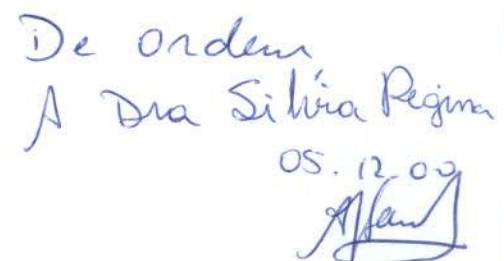 De ordem
A Dra Silvia Regina
05.12.00